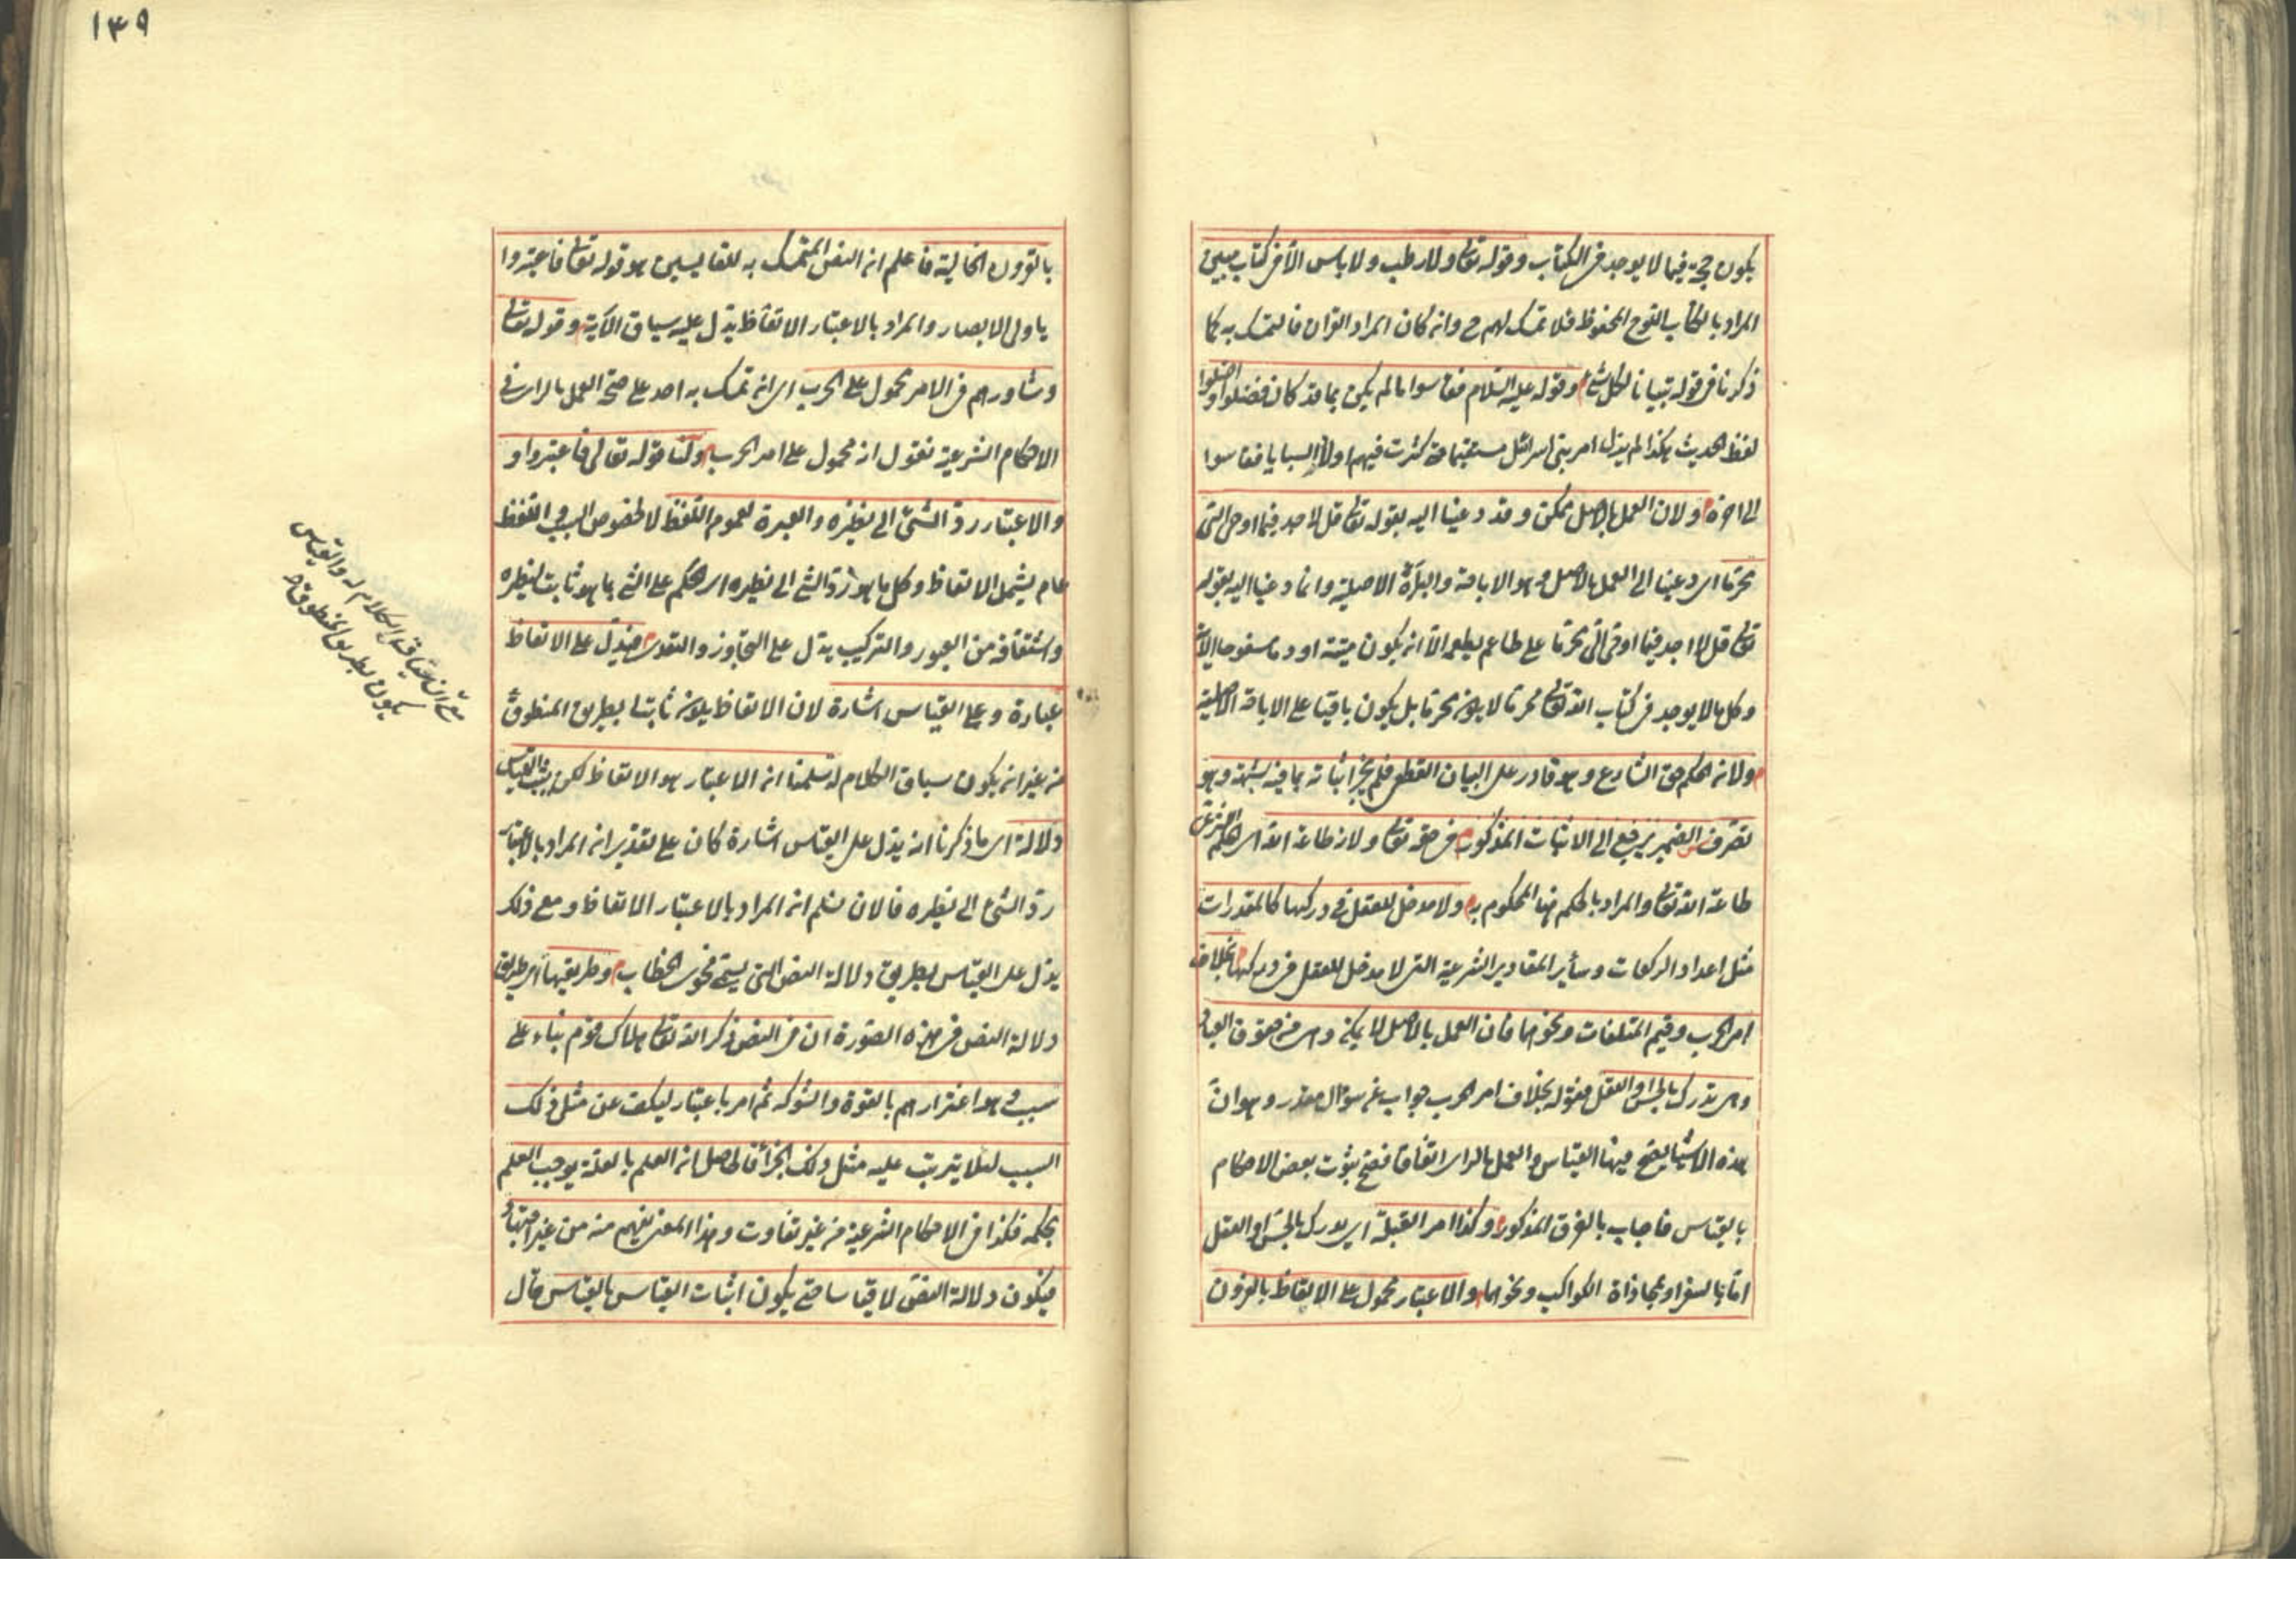 يكون حجة فيما لا يوجد في الكتاب وقوله تع ولا رطب ولا يابس الا في كتاب مبين
المراد بالكتاب اللوح المحفوظ فلا تمسك لهم ح وان كان المراد القران فالتمسك به كما
ذكرنا في قوله تبيانا لكل شئ وقوله عليه السلام فقاسوا ما لم يكن بما قد كان فضلوا واضلوا
لفظ الحديث هكذا لم يزل امر بني اسرائل مستقيما حتى كثرت فيهم اولاد السبايا فقاسوا
الى اخره ولان العمل بالاصل ممكن وقد دعينا اليه بقوله تع قل لا اجد فيما اوحي الي
محرما اي دعينا الى العمل بالاصل وهو الاباحة والبرأة الاصلية وانما دعينا اليه بقوله
تع قل لا اجد فيما اوحي الي محرما على طاعم يطعمه الا ان يكون ميتة او دما مسفوحا الاية
وكل ما لا يوجد في كتاب الله تع محرما لا يكون محرما بل يكون باقيا على الاباحة الاصلية
ولان الحكم حق الشارع وهو قادر على البيان القطعي فلم يجز اثباته بما فيه شبهة وهو
تصرف الضمير يرجع الى الاثبات المذكور في حقه تع ولانه طاعة الله اي الحكم الشرعي
طاعة الله تع والمراد بالحكم هنا المحكوم به ولا مدخل للعقل في دركها كالمقدرات
مثل اعداد الركعات وسائر المقادير الشرعية التي لا مدخل للعقل في دركها بخلاف
امر الحرب وقيم المتلفات ونحوهما فان العمل بالاصل لا يمكن وهي من حقوق العباد
وهي تدرك بالحس او العقل فقوله بخلاف امر الحرب جواب عن سؤال مقدر وهو ان
هذه الاشياء يصح فيها القياس والعمل بالراي اتفاقا فصح ثبوت بعض الاحكام
بالقياس فاجاب بالفرق المذكور وكذا امر القبلة اي يدرك بالحس او العقل
اما بالسفر او بمحاذاة الكواكب ونحوهما والاعتبار محمول على الاتعاظ بالقرون
١٣٩
بالقرون الخالية فاعلم ان النص المتمسك به للقايسين هو قوله تع فاعتبروا
يا ولى الابصار والمراد بالاعتبار الاتعاظ يدل عليه سياق الاية وقوله تع
وشاورهم في الامر محمول على الحرب اي ان تمسك به احد على صحة العمل بالراي في
الاحكام الشرعية نقول انه محمول على امر الحرب ولنا قوله تعالى فاعتبروا و
والاعتبار رد الشئ الى نظيره والعبرة لعموم اللفظ لا لخصوص السبب اللفظ
عام يشمل الاتعاظ وكل ما هو رد الشئ الى نظيره اي الحكم على الشئ بما هو ثابت لنظيره
واشتقاقه من العبور والتركيب يدل على التجاوز والتعدي فيدل على الاتعاظ
عبارة وعلى القياس اشارة لان الاتعاظ يكون ثابتا بطريق المنطوق
من غير ان يكون سياق الكلام له سلمنا ان الاعتبار هو الاتعاظ لكن يثبت القياس
دلالة اي ما ذكرنا انه يدل على القياس اشارة كان على تقدير ان المراد بالاعتبار
رد الشئ الى نظيره فالان نسلم ان المراد بالاعتبار الاتعاظ ومع ذلك
يدل على القياس بطريق دلالة النص التي يسمى فحوى الخطاب وطريقها اي طريق
دلالة النص في هذه الصورة ان في النص ذكر الله تع هلاك قوم بناء على
سبب هو اغترارهم بالقوة والشوكة ثم امر باعتبار ليكف عن مثل ذلك
السبب لئلا يترتب عليه مثل ذلك الجزأ فالحاصل ان العلم بالعلة يوجب العلم
بحكمه فكذا في الاحكام الشرعية من غير تفاوت وهذا المعنى يفهم منه من غير اجتهاد
فيكون دلالة النص لا قياسا حتى يكون اثبات القياس بالقياس قال
مع ان سياق الكلام له والقياس
يكون بطريق المنطوق